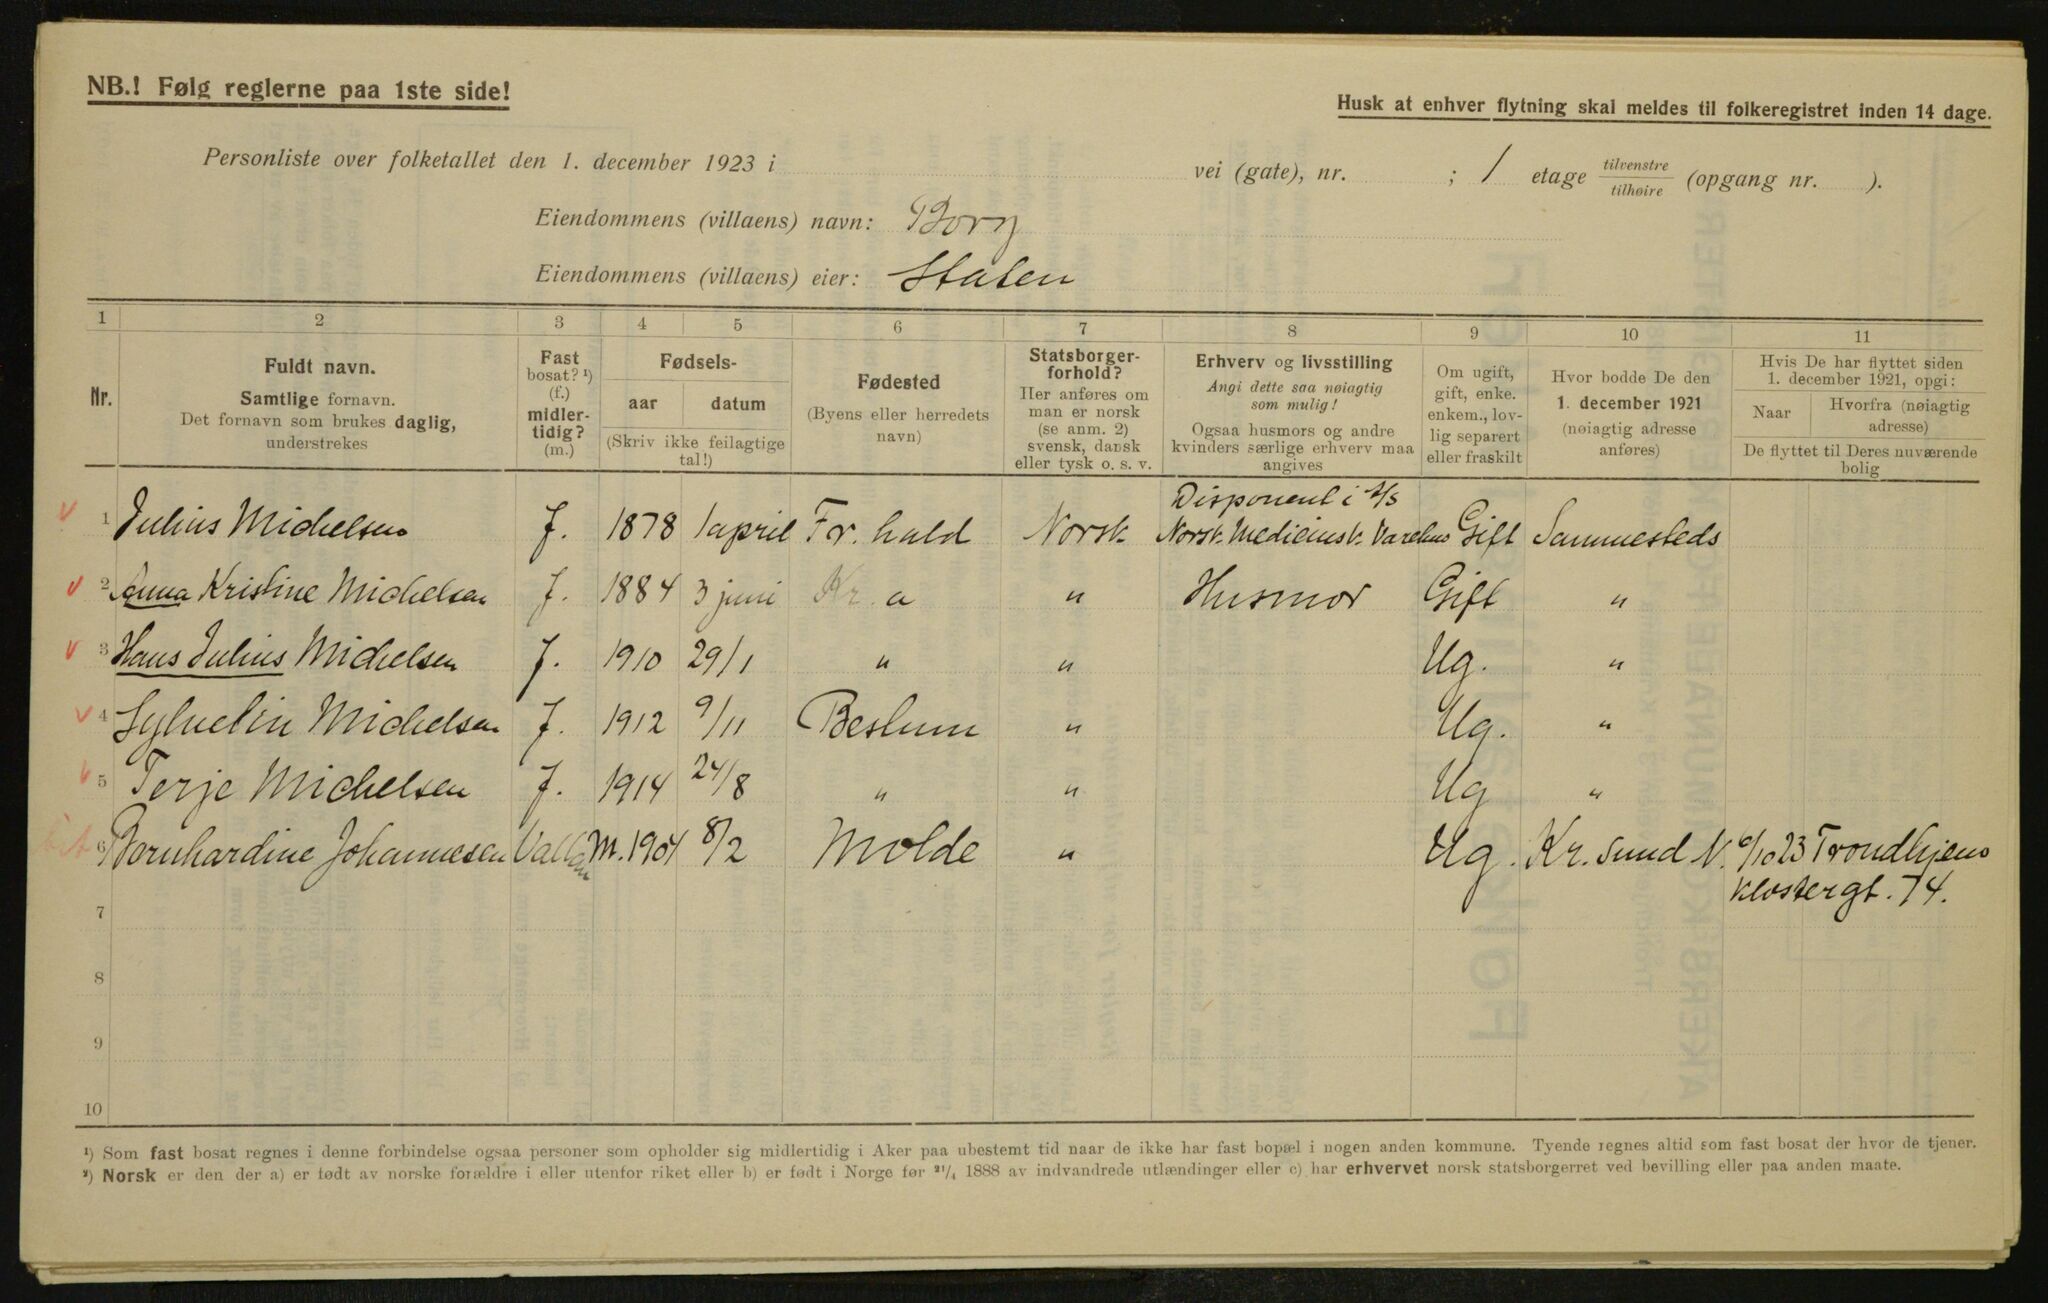 NB.! Følg reglerne paa 1ste side!
Husk at enhver flytning skal meldes til folkeregistret inden 14 dage.
Personliste over folketallet den 1. december 1923 i vei (gate), nr. ; 1 etage tilvenstre / tilhøire (opgang nr. ).
Eiendommens (villaens) navn: Borg
Eiendommens (villaens) eier: Staten
1 2 3 4 5 6 7 8 9 10 11
Nr.
Fuldt navn.
Samtlige fornavn.
Det fornavn som brukes daglig,
understrekes
Fast
bosat? ¹)
(f.)
midler-
tidig?
(m.)
Fødsels-
aar datum
(Skriv ikke feilagtige
tal!)
Fødested
(Byens eller herredets
navn)
Statsborger-
forhold?
Her anføres om
man er norsk
(se anm. 2)
svensk, dansk
eller tysk o. s. v.
Erhverv og livsstilling
Angi dette saa nøiagtig
som mulig!
Ogsaa husmors og andre
kvinders særlige erhverv maa
angives
Om ugift,
gift, enke.
enkem., lov-
lig separert
eller fraskilt
Hvor bodde De den
1. december 1921
(nøiagtig adresse
anføres)
Hvis De har flyttet siden
1. december 1921, opgi:
Naar Hvorfra (nøiagtig
adresse)
De flyttet til Deres nuværende
bolig
Disponent i A/S
1 Julius Michelsen f. 1878 1 april Fr. hald Norsk Norsk Medicinsk Varehus Gift Sammesteds
2 Anna Kristine Michelsen f. 1884 3 juni Kr. a " Husmor Gift "
3 Hans Julius Michelsen f. 1910 29/1 " " Ug. "
4 Sylvelin Michelsen f. 1912 9/11 Bestum " Ug. "
5 Terje Michelsen f. 1914 24/8 " " Ug "
6 Bernhardine Johannesen m. 1904 8/2 Molde " Ug. Kr. sund N. Trondhjem
Klostergt. 74.
7
8
9
10
¹) Som fast bosat regnes i denne forbindelse ogsaa personer som opholder sig midlertidig i Aker paa ubestemt tid naar de ikke har fast bopæl i nogen anden kommune. Tyende regnes altid som fast bosat der hvor de tjener.
²) Norsk er den der a) er født av norske forældre i eller utenfor riket eller b) er født i Norge før ²¹/₄ 1888 av indvandrede utlændinger eller c) har erhvervet norsk statsborgerret ved bevilling eller paa anden maate.